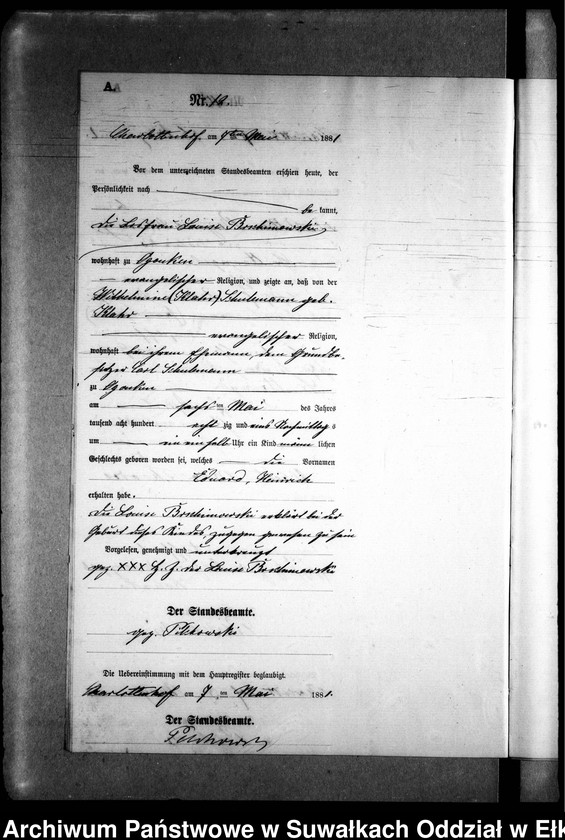 A.
Nr. 18.
Charlottenhof, am 7ten Mai 1881
Vor dem unterzeichneten Standesbeamten erschien heute, der
Persönlichkeit nach
be kannt,
die Losfrau Louise
wohnhaft zu
evangelischer Religion, und zeigte an, daß von der
Wilhelmine (Klahr) Schulemann geb.
Klahr
evangelischer Religion,
wohnhaft bei ihrem Ehemann, dem Grundbe
sitzer Carl Schulemann
zu
am sechs ten Mai des Jahres
tausend acht hundert acht zig und eins Nachmittag s
um ein einhalb Uhr ein Kind männ lichen
Geschlechts geboren worden sei, welches die Vornamen
Eduard, Heinrich
erhalten habe.
Die Louise erklärt bei der
Geburt dieses Kindes zugegen gewesen zu sein
Vorgelesen, genehmigt und unterkreuzt
gez. XXX H. Z. der Louise
Der Standesbeamte.
gez.
Die Uebereinstimmung mit dem Hauptregister beglaubigt.
Charlottenhof am 7 ten Mai 1881.
Der Standesbeamte.
Archiwum Państwowe w Suwałkach Oddział w Ełk